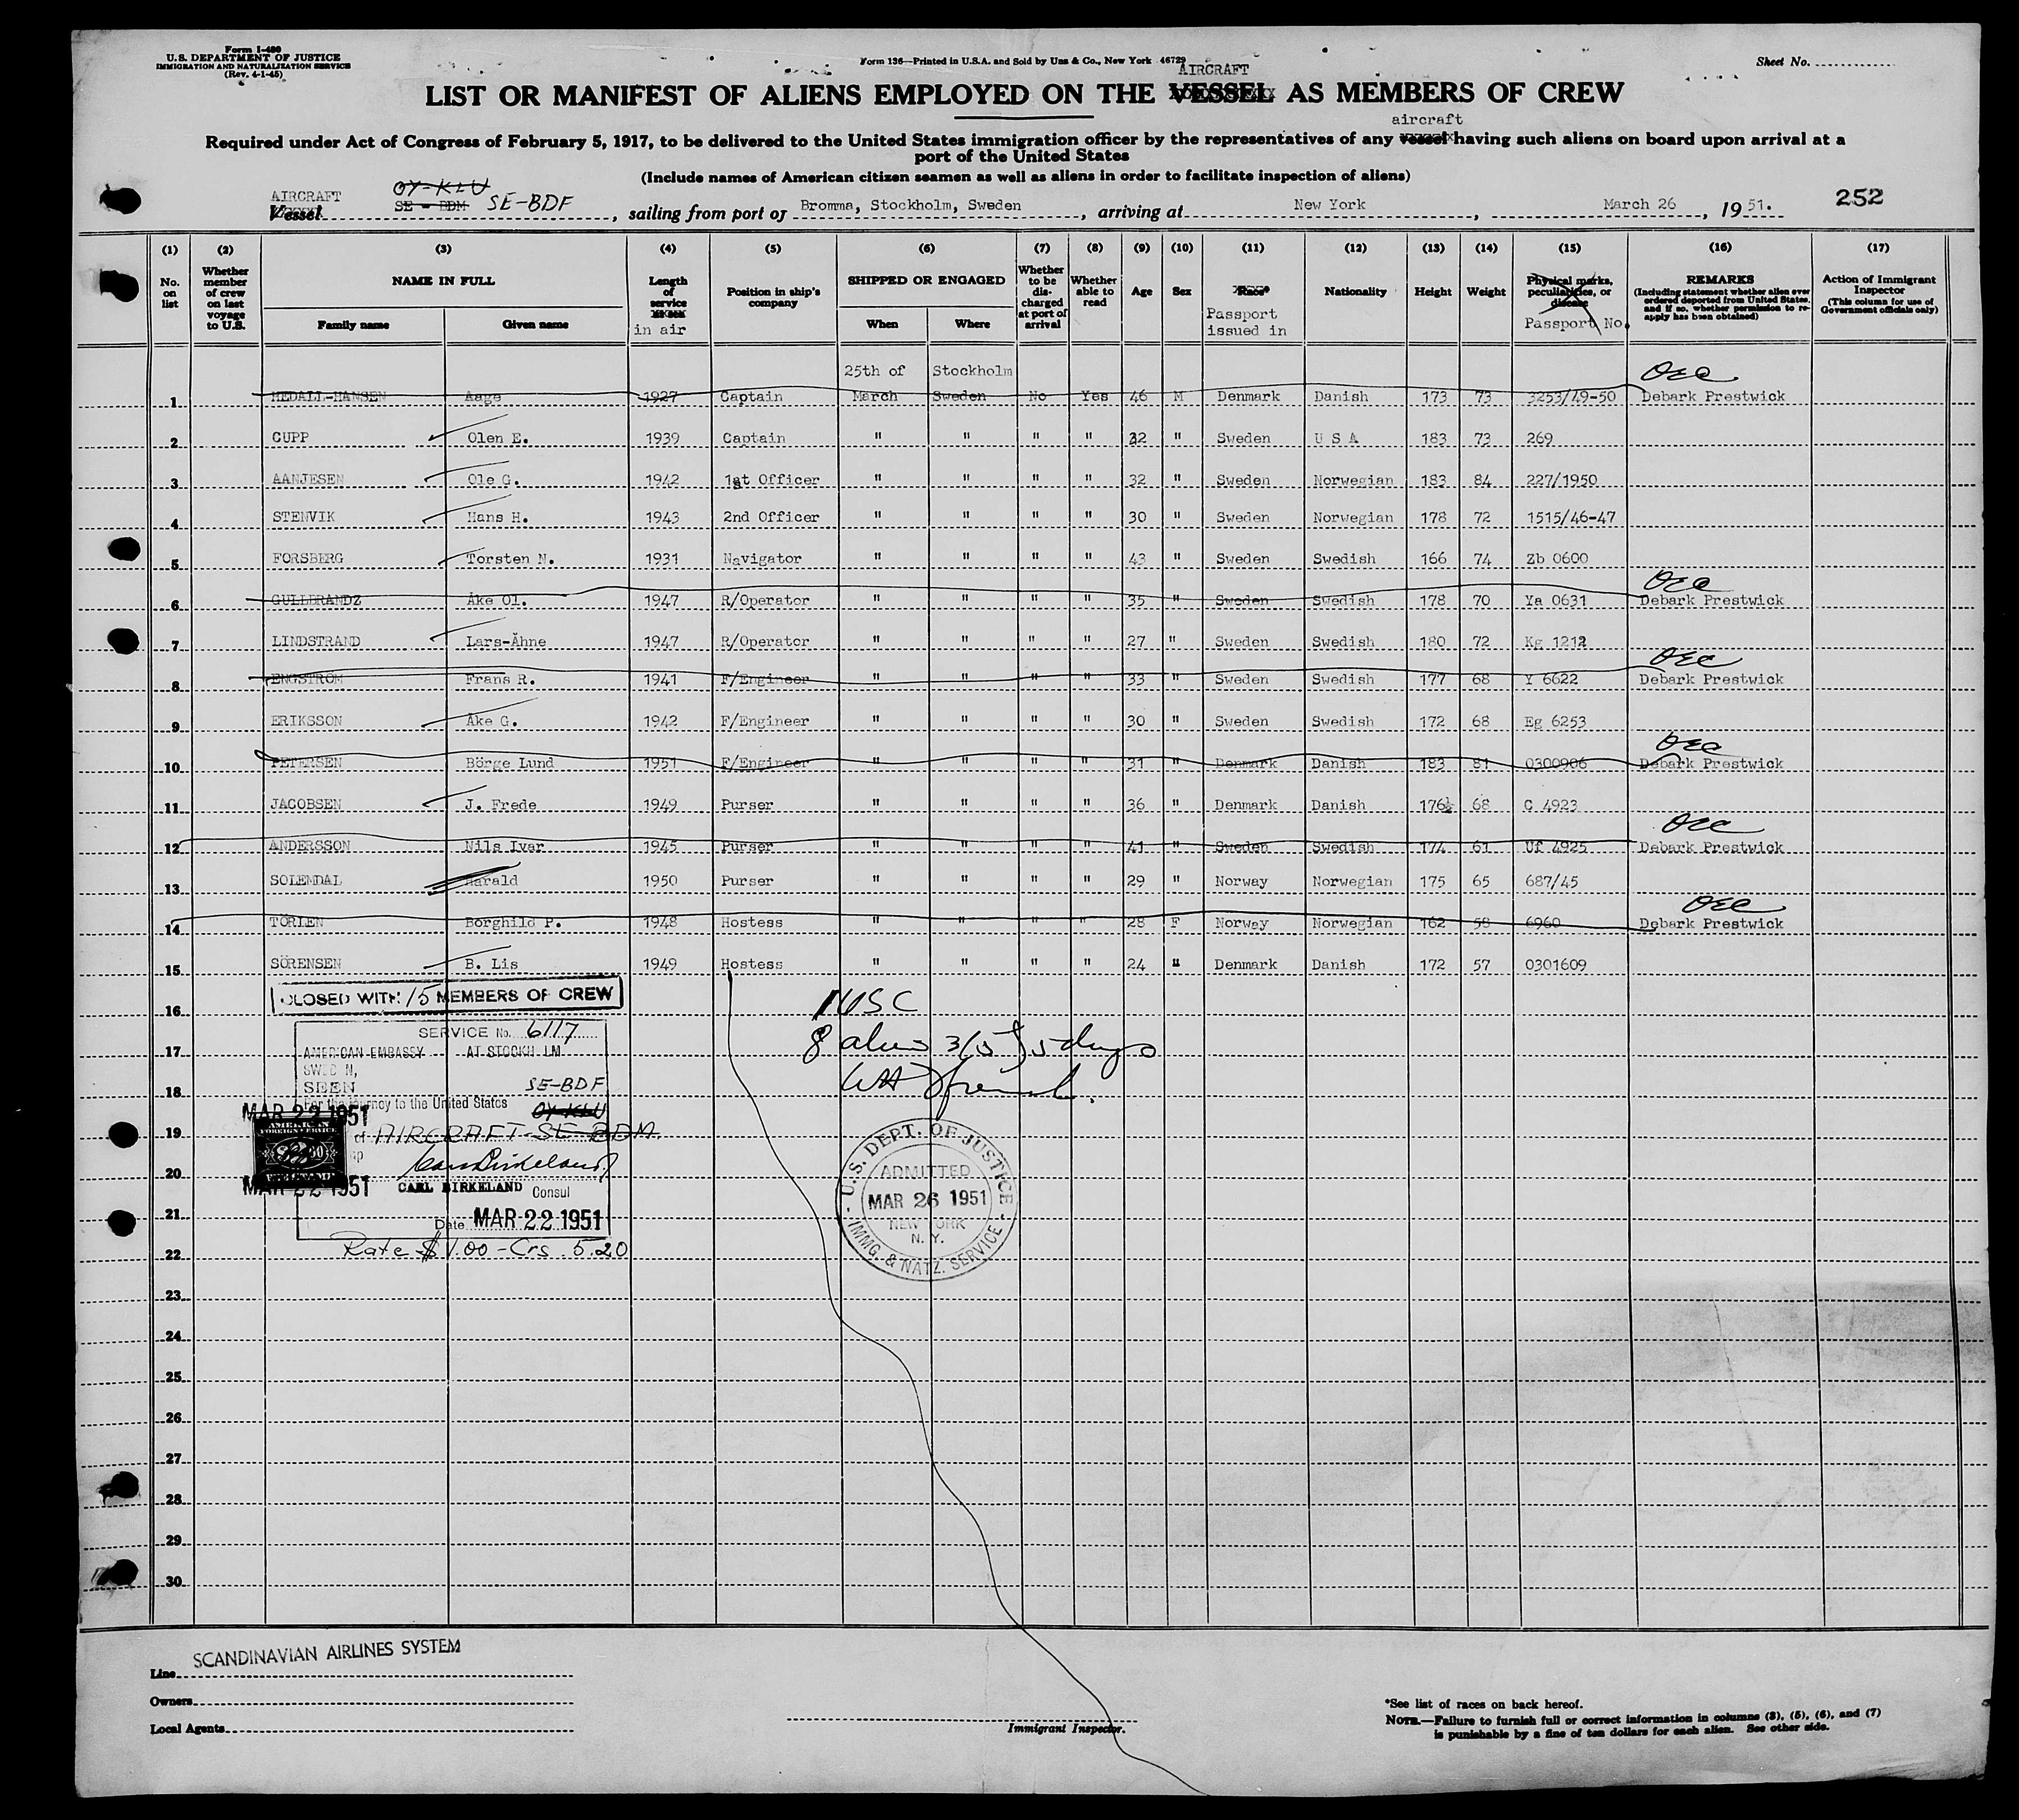 Form I-480
U.S. DEPARTMENT OF JUSTICE
IMMIGRATION AND NATURALIZATION SERVICE
(Rev. 4-1-45)
Form 136—Printed in U.S.A. and Sold by Unz & Co., New York 46729
Sheet No.
AIRCRAFT
LIST OR MANIFEST OF ALIENS EMPLOYED ON THE VESSEL AS MEMBERS OF CREW
aircraft
Required under Act of Congress of February 5, 1917, to be delivered to the United States immigration officer by the representatives of any vessel having such aliens on board upon arrival at a
port of the United States
(Include names of American citizen seamen as well as aliens in order to facilitate inspection of aliens)
AIRCRAFT OY-KLU
Vessel SE - BDM SE-BDF, sailing from port of Bromma, Stockholm, Sweden, arriving at New York, March 26, 1951. 252
(1) (2) (3) (4) (5) (6) (7) (8) (9) (10) (11) (12) (13) (14) (15) (16) (17)
No. on list
Whether member of crew on last voyage to U.S.
NAME IN FULL
Family name Given name
Length of service in air
Position in ship's company
SHIPPED OR ENGAGED
When Where
Whether to be discharged at port of arrival
Whether able to read
Age
Sex
Race*
Passport issued in
Nationality
Height
Weight
Physical marks, peculiarities, or disease
Passport No.
REMARKS
(Including statement whether alien ever ordered deported from United States, and if so, whether permission to reapply has been obtained)
Action of Immigrant Inspector
(This column for use of Government officials only)
25th of Stockholm
1 MEDALL-HANSEN Aage 1927 Captain March Sweden No Yes 46 M Denmark Danish 173 73 3253/49-50 Debark Prestwick
2 CUPP Olen E. 1939 Captain " " " " 32 " Sweden U S A 183 73 269
3 AANJESEN Ole G. 1942 1st Officer " " " " 32 " Sweden Norwegian 183 84 227/1950
4 STENVIK Hans H. 1943 2nd Officer " " " " 30 " Sweden Norwegian 178 72 1515/46-47
5 FORSBERG Torsten N. 1931 Navigator " " " " 43 " Sweden Swedish 166 74 Zb 0600
6 GULLBRANDZ Åke Ol. 1947 R/Operator " " " " 35 " Sweden Swedish 178 70 Ya 0631 Debark Prestwick
7 LINDSTRAND Lars-Åhne 1947 R/Operator " " " " 27 " Sweden Swedish 180 72 Kg 1212
8 ENGSTRÖM Frans R. 1941 F/Engineer " " " " 33 " Sweden Swedish 177 68 Y 6622 Debark Prestwick
9 ERIKSSON Åke G. 1942 F/Engineer " " " " 30 " Sweden Swedish 172 68 Eg 6253
10 PETERSEN Börge Lund 1951 F/Engineer " " " " 31 " Denmark Danish 183 81 0300906 Debark Prestwick
11 JACOBSEN J. Frede 1949 Purser " " " " 36 " Denmark Danish 176½ 68 C 4923
12 ANDERSSON Nils Ivar 1945 Purser " " " " 41 " Sweden Swedish 174 61 Uf 4925 Debark Prestwick
13 SOLEMDAL Harald 1950 Purser " " " " 29 " Norway Norwegian 175 65 687/45
14 TÖRLEN Borghild P. 1948 Hostess " " " " 28 F Norway Norwegian 162 58 6960 Debark Prestwick
15 SÖRENSEN B. Lis 1949 Hostess " " " " 24 " Denmark Danish 172 57 0301609
CLOSED WITH 15 MEMBERS OF CREW
16
17
18
19
20
21
22
23
24
25
26
27
28
29
30
SERVICE No. 6117
AMERICAN EMBASSY AT STOCKHOLM
SWEDEN,
SEEN SE-BDF
For the journey to the United States OY-KLU
MAR 22 1951
of AIRCRAFT-SE-BDM
MAR 22 1951
CARL BIRKELAND Consul
Date MAR 22 1951
Rate $1.00 - Crs. 5.20
1 USC
8 aliens 3(5) 5 days
U.S. DEPT. OF JUSTICE
ADMITTED
MAR 26 1951
NEW YORK
N.Y.
IMMG. & NATZ. SERVICE
Line SCANDINAVIAN AIRLINES SYSTEM
Owners
Local Agents
Immigrant Inspector.
*See list of races on back hereof.
NOTE.—Failure to furnish full or correct information in columns (3), (5), (6), and (7)
is punishable by a fine of ten dollars for each alien. See other side.